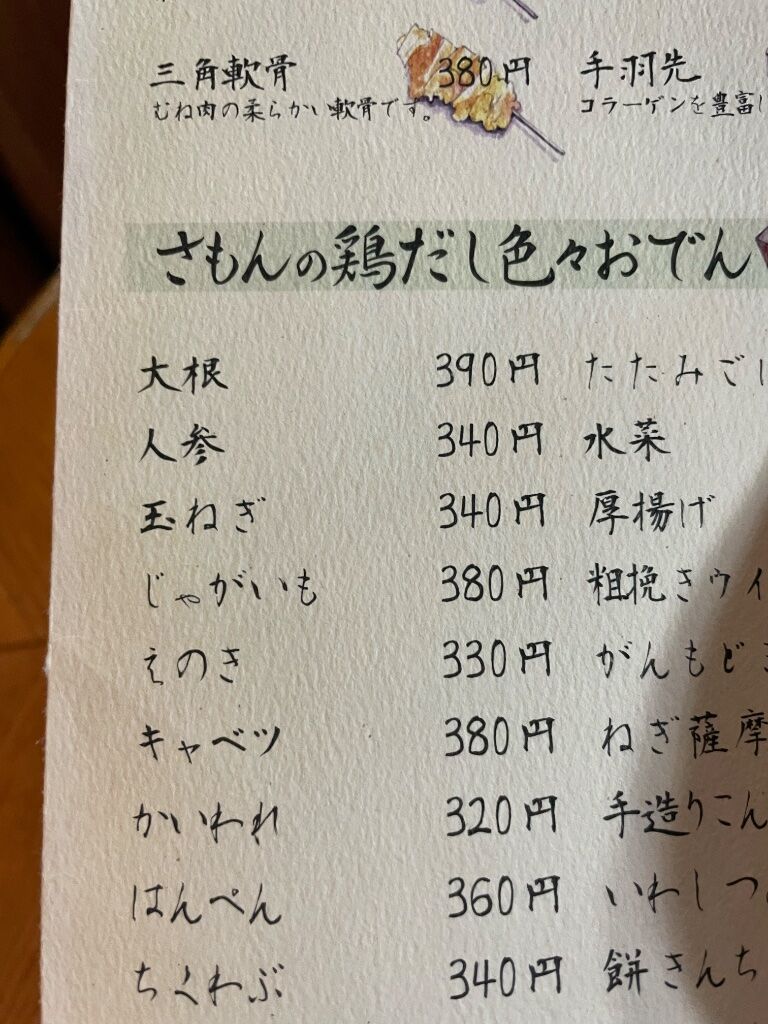 三角軟骨 380円 手羽先
むね肉の柔らかい軟骨です。 コラーゲンを豊富
さもんの鶏だし色々おでん
大根 390円 たたみご
人参 340円 水菜
玉ねぎ 340円 厚揚げ
じゃがいも 380円 粗挽きウイ
えのき 330円 がんもど
キャベツ 380円 ねぎ薩摩
かいわれ 320円 手造りこん
はんぺん 360円 いわしつ
ちくわぶ 340円 餅きんち